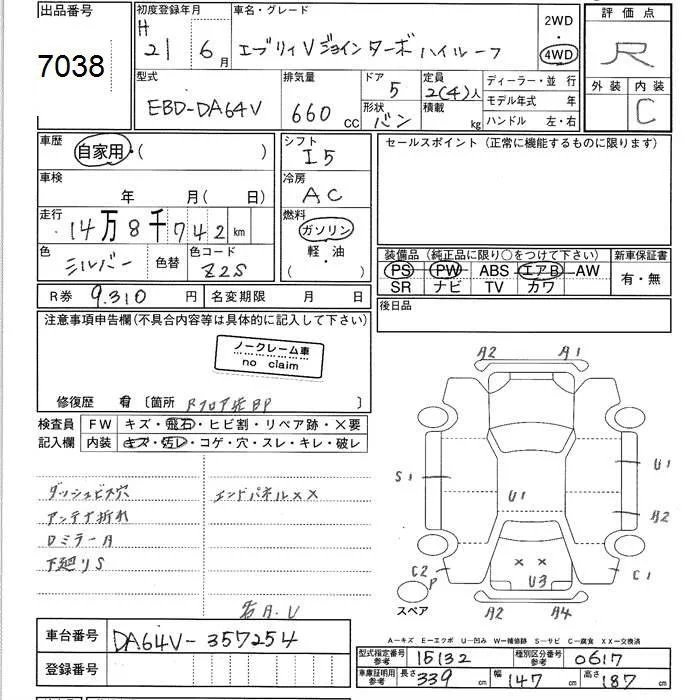 出品番号
7038
初度登録年月
H 21 6月
車名・グレード
エブリィVジョインターボ ハイルーフ
2WD
・
4WD
評価点
R
外装 内装
C
型式
EBD-DA64V
排気量
660 cc
ドア
5
形状
バン
定員
2(4)人
積載
kg
ディーラー・並 行
モデル年式 年
ハンドル 左・右
車歴
自家用・( )
車検
年 月( 日)
走行
14万8千742km
色
シルバー 色替
色コード
Z2S
シフト
I5
冷房
AC
燃料
ガソリン
軽・油
( )
セールスポイント (正常に機能するものに限ります)
装備品 (純正品に限り○をつけて下さい)
PS PW ABS エアB AW
SR ナビ TV カワ
新車保証書
有・無
R券 9.310 円 名変期限 月 日
後日品
注意事項申告欄(不具合内容等は具体的に記入して下さい)
ノークレーム車
no claim
修復歴 有 〔箇所 Rフロア左BP 〕
検査員 FW キズ・飛石・ヒビ割・リペア跡・×要
記入欄 内装 キズ・汚レ・コゲ・穴・スレ・キレ・破レ
ダッシュビス穴
アンテナ折れ
ロミラーA
下廻りS
エンドパネル××
右A.U
A2 A1
S1 U1 U1
A2
×× 
U3
C2 P C1
スペア
A2 A4
車台番号 DA64V-357254
登録番号
A-キズ E-エクボ U-凹み W-補修跡 S-サビ C-腐食 XX-交換済
型式指定番号 参考 15132 種別区分番号 参考 0617
車庫証明用 参考 長さ 339 cm 幅 147 cm 高さ 187 cm